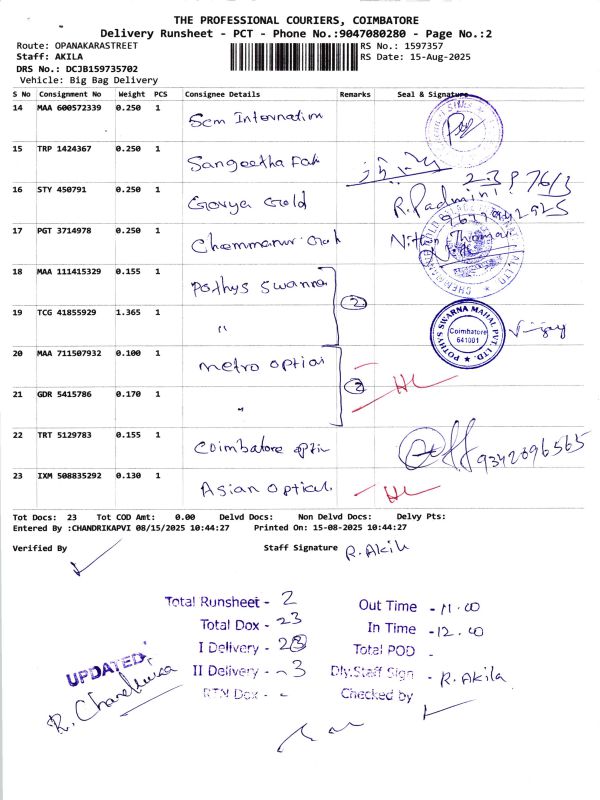 THE PROFESSIONAL COURIERS, COIMBATORE
Delivery Runsheet - PCT - Phone No.:9047080280 - Page No.:2
Route: OPANAKARASTREET RS No.: 1597357
Staff: AKILA RS Date: 15-Aug-2025
DRS No.: DCJB159735702
Vehicle: Big Bag Delivery
S No Consignment No Weight PCS Consignee Details Remarks Seal & Signature
14 MAA 600572339 0.250 1 Scm Internation
15 TRP 1424367 0.250 1 Sangeetha
16 STY 450791 0.250 1 Gold R.Padmini
17 PGT 3714978 0.250 1 Chemmanur
18 MAA 111415329 0.155 1 Pothys Swarna 2
19 TCG 41855929 1.365 1 "
POTHYS SWARNA MAHAL PVT. LTD.
Coimbatore
641001
20 MAA 711507932 0.100 1 metro optical 2 HL
21 GDR 5415786 0.170 1 "
22 TRT 5129783 0.155 1 Coimbatore 9342696565
23 IXM 508835292 0.130 1 Asian Optical HL
Tot Docs: 23 Tot COD Amt: 0.00 Delvd Docs: Non Delvd Docs: Delvy Pts:
Entered By :CHANDRIKAPVI 08/15/2025 10:44:27 Printed On: 15-08-2025 10:44:27
Verified By Staff Signature R.Akila
Total Runsheet - 2 Out Time - 11.00
Total Dox - 23 In Time - 12.40
I Delivery - 23 Total POD -
II Delivery - 3 Dly.Staff Sign - R.Akila
RTN Dox - - Checked by
UPDATED